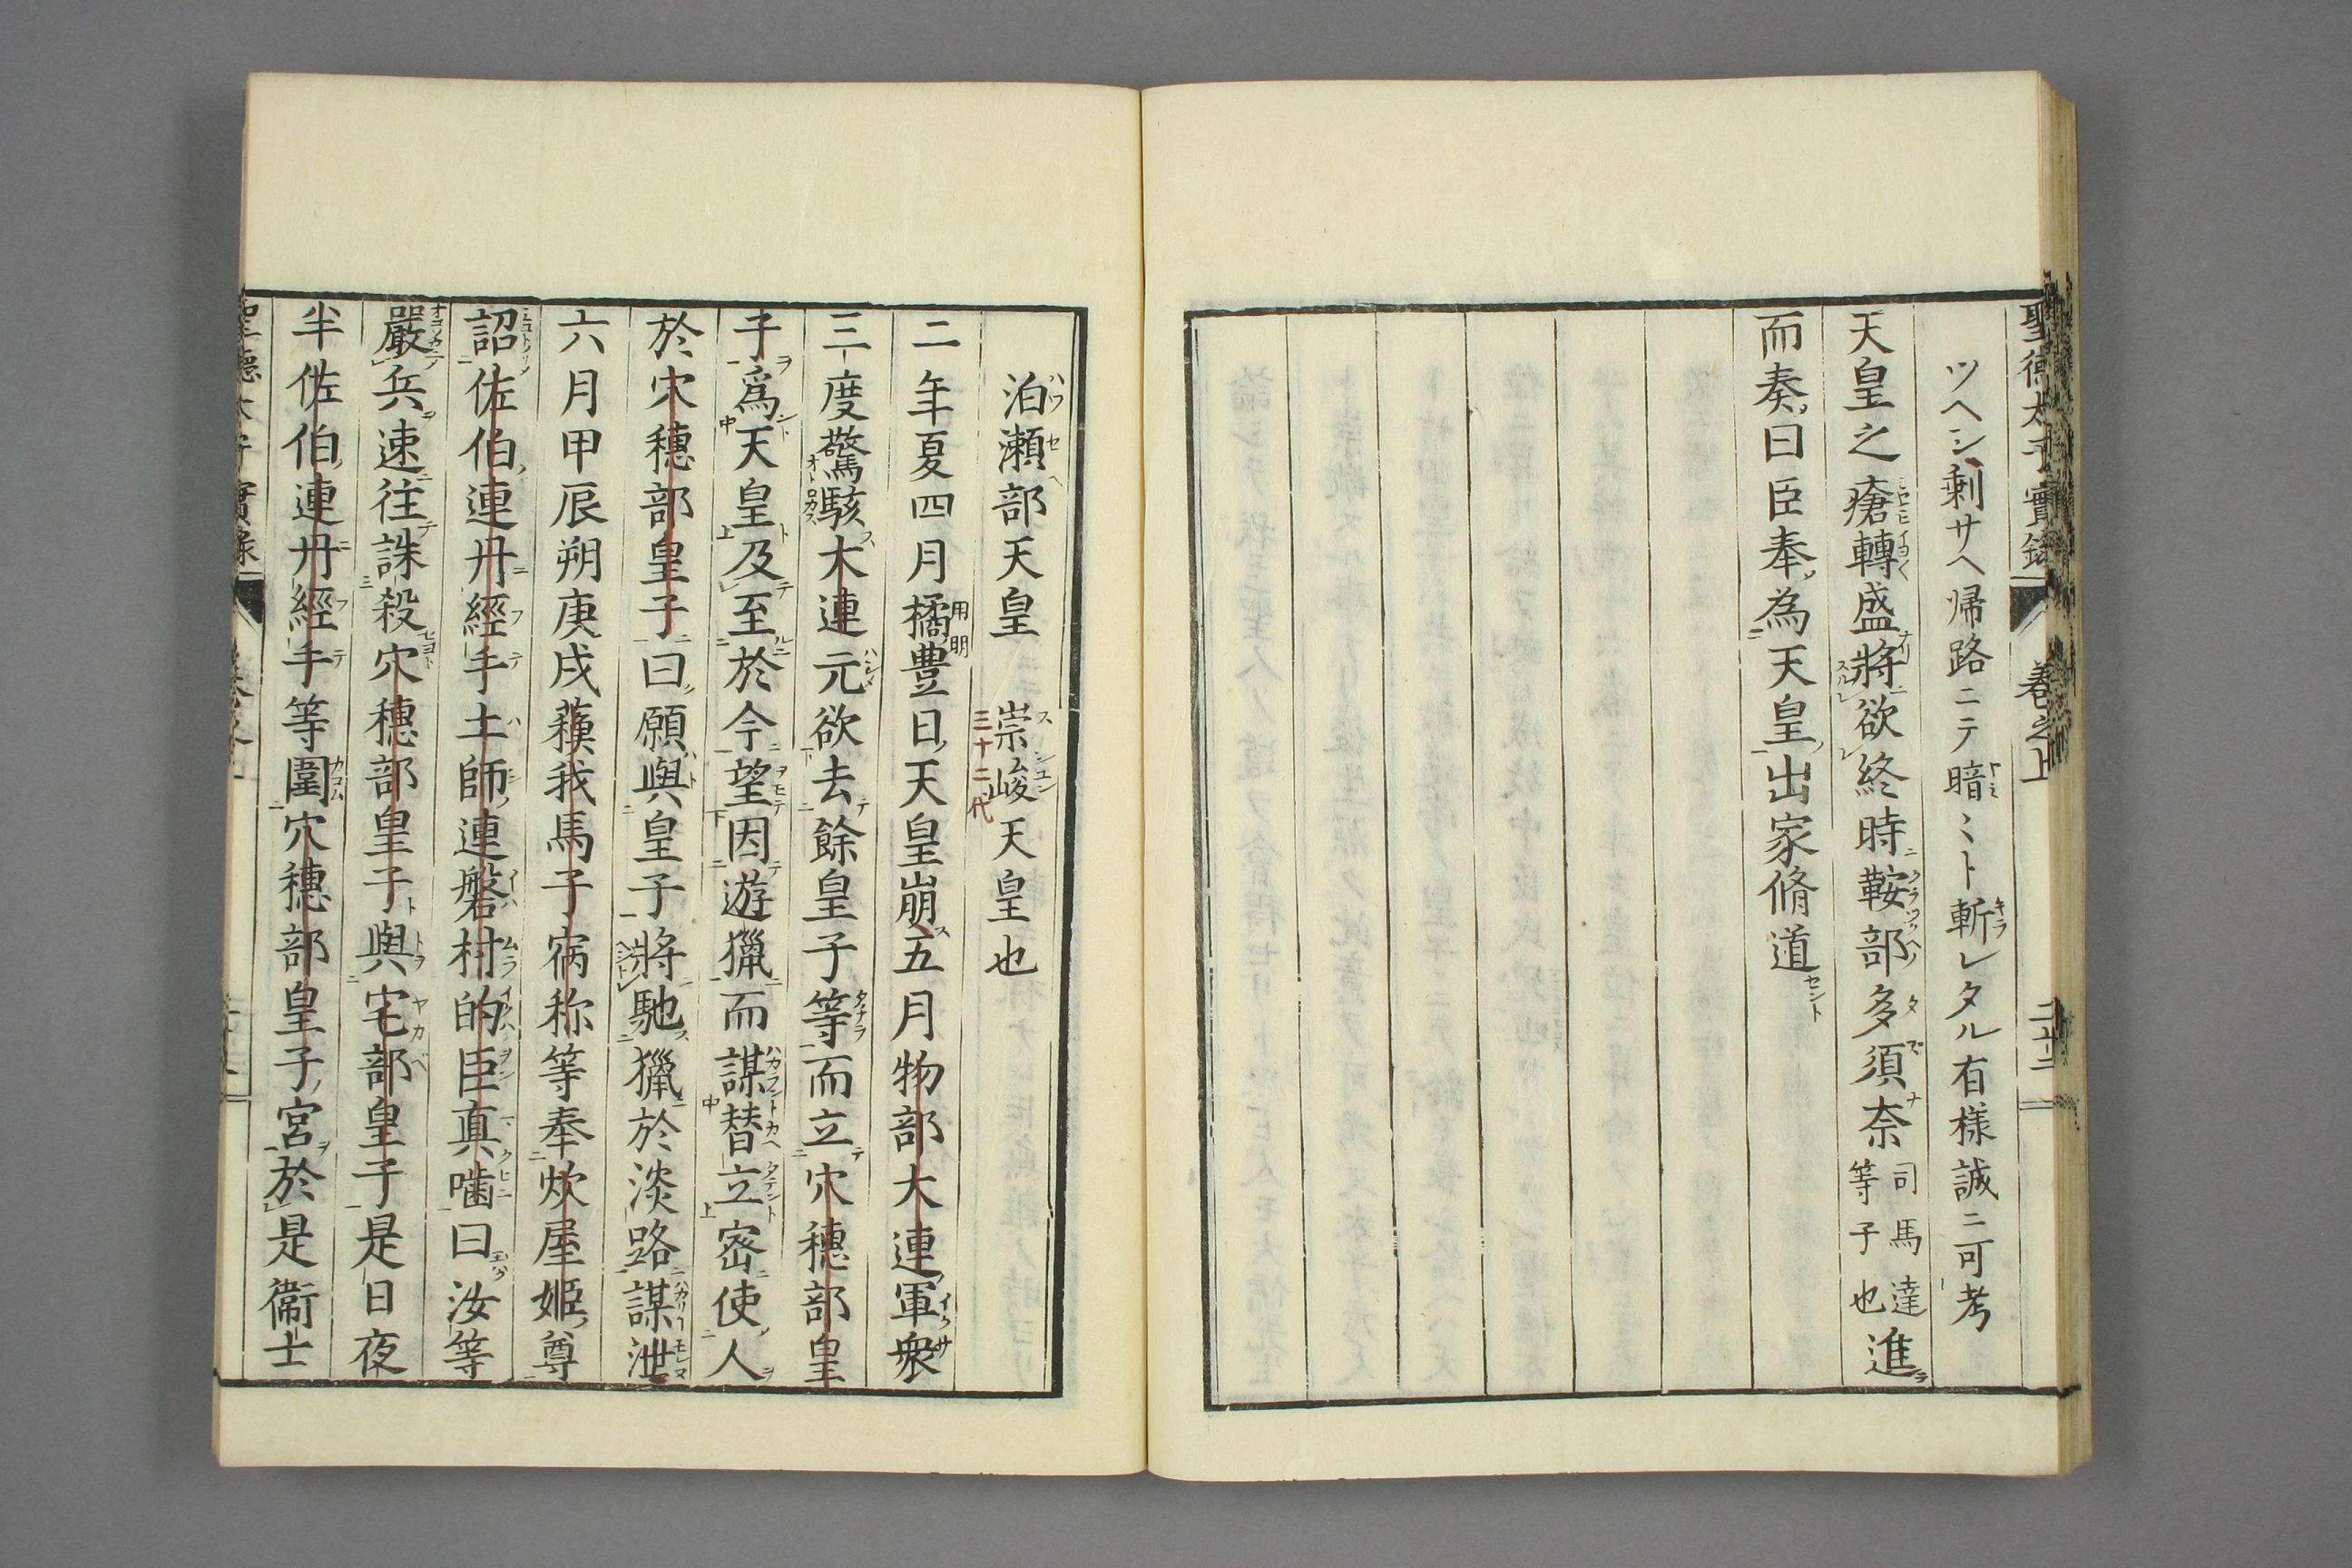 聖徳太子實録 巻之上
ツヘシ剰サヘ帰路ニテ暗ミト斬レタル有様誠ニ可考
天皇之瘡轉盛將欲終時鞍部多須奈司馬達等子也進
而奏曰臣奉為天皇出家脩道
泊瀬部天皇 崇峻天皇也
三十二代
二年夏四月橘豊日天皇崩五月物部大連軍衆
用明
三度驚駭大連元欲去餘皇子等而立穴穗部皇
子爲天皇及至於今望因遊獵而謀替立密使人
於穴穗部皇子曰願與皇子將馳獵於淡路謀泄
六月甲辰朔庚戌蘓我馬子宿祢等奉炊屋姫尊
詔佐伯連丹經手土師連磐村的臣真噛曰汝等
嚴兵速往誅殺穴穗部皇子與宅部皇子是日夜
半佐伯連丹經手等圍穴穗部皇子宮於是衞士